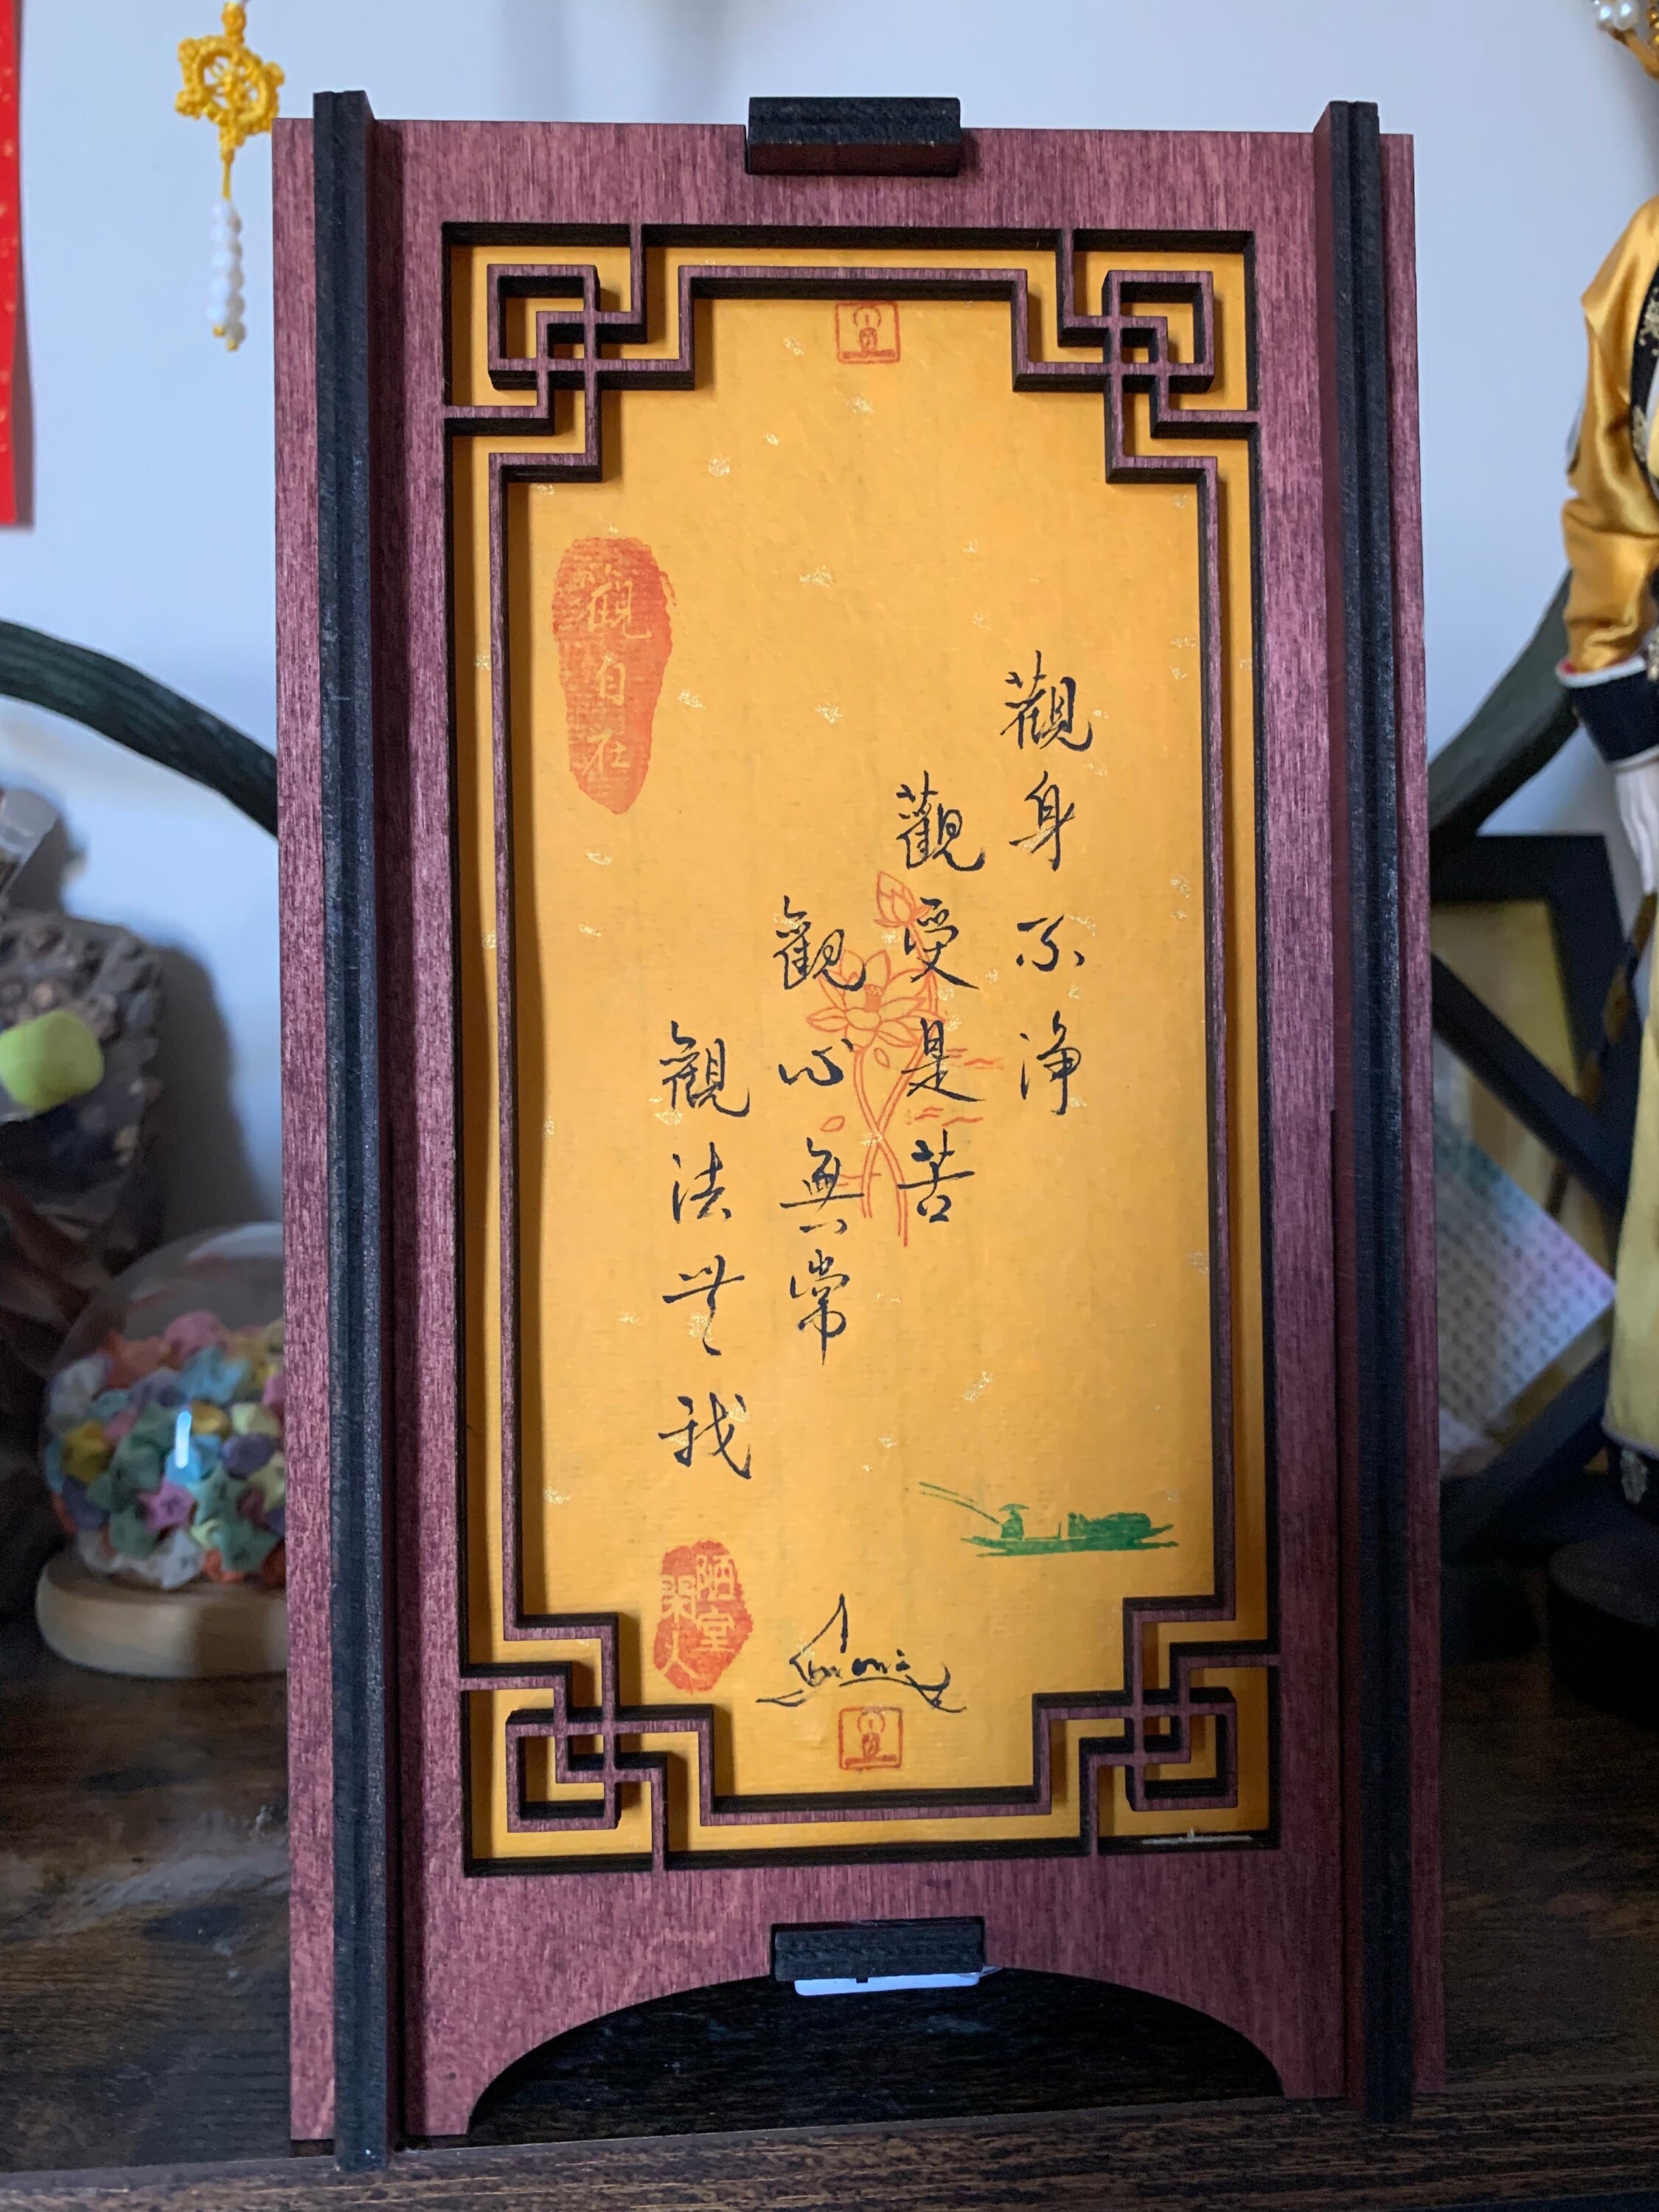 觀身不淨
觀受是苦
觀心無常
觀法無我
觀自在
陋室
閑人